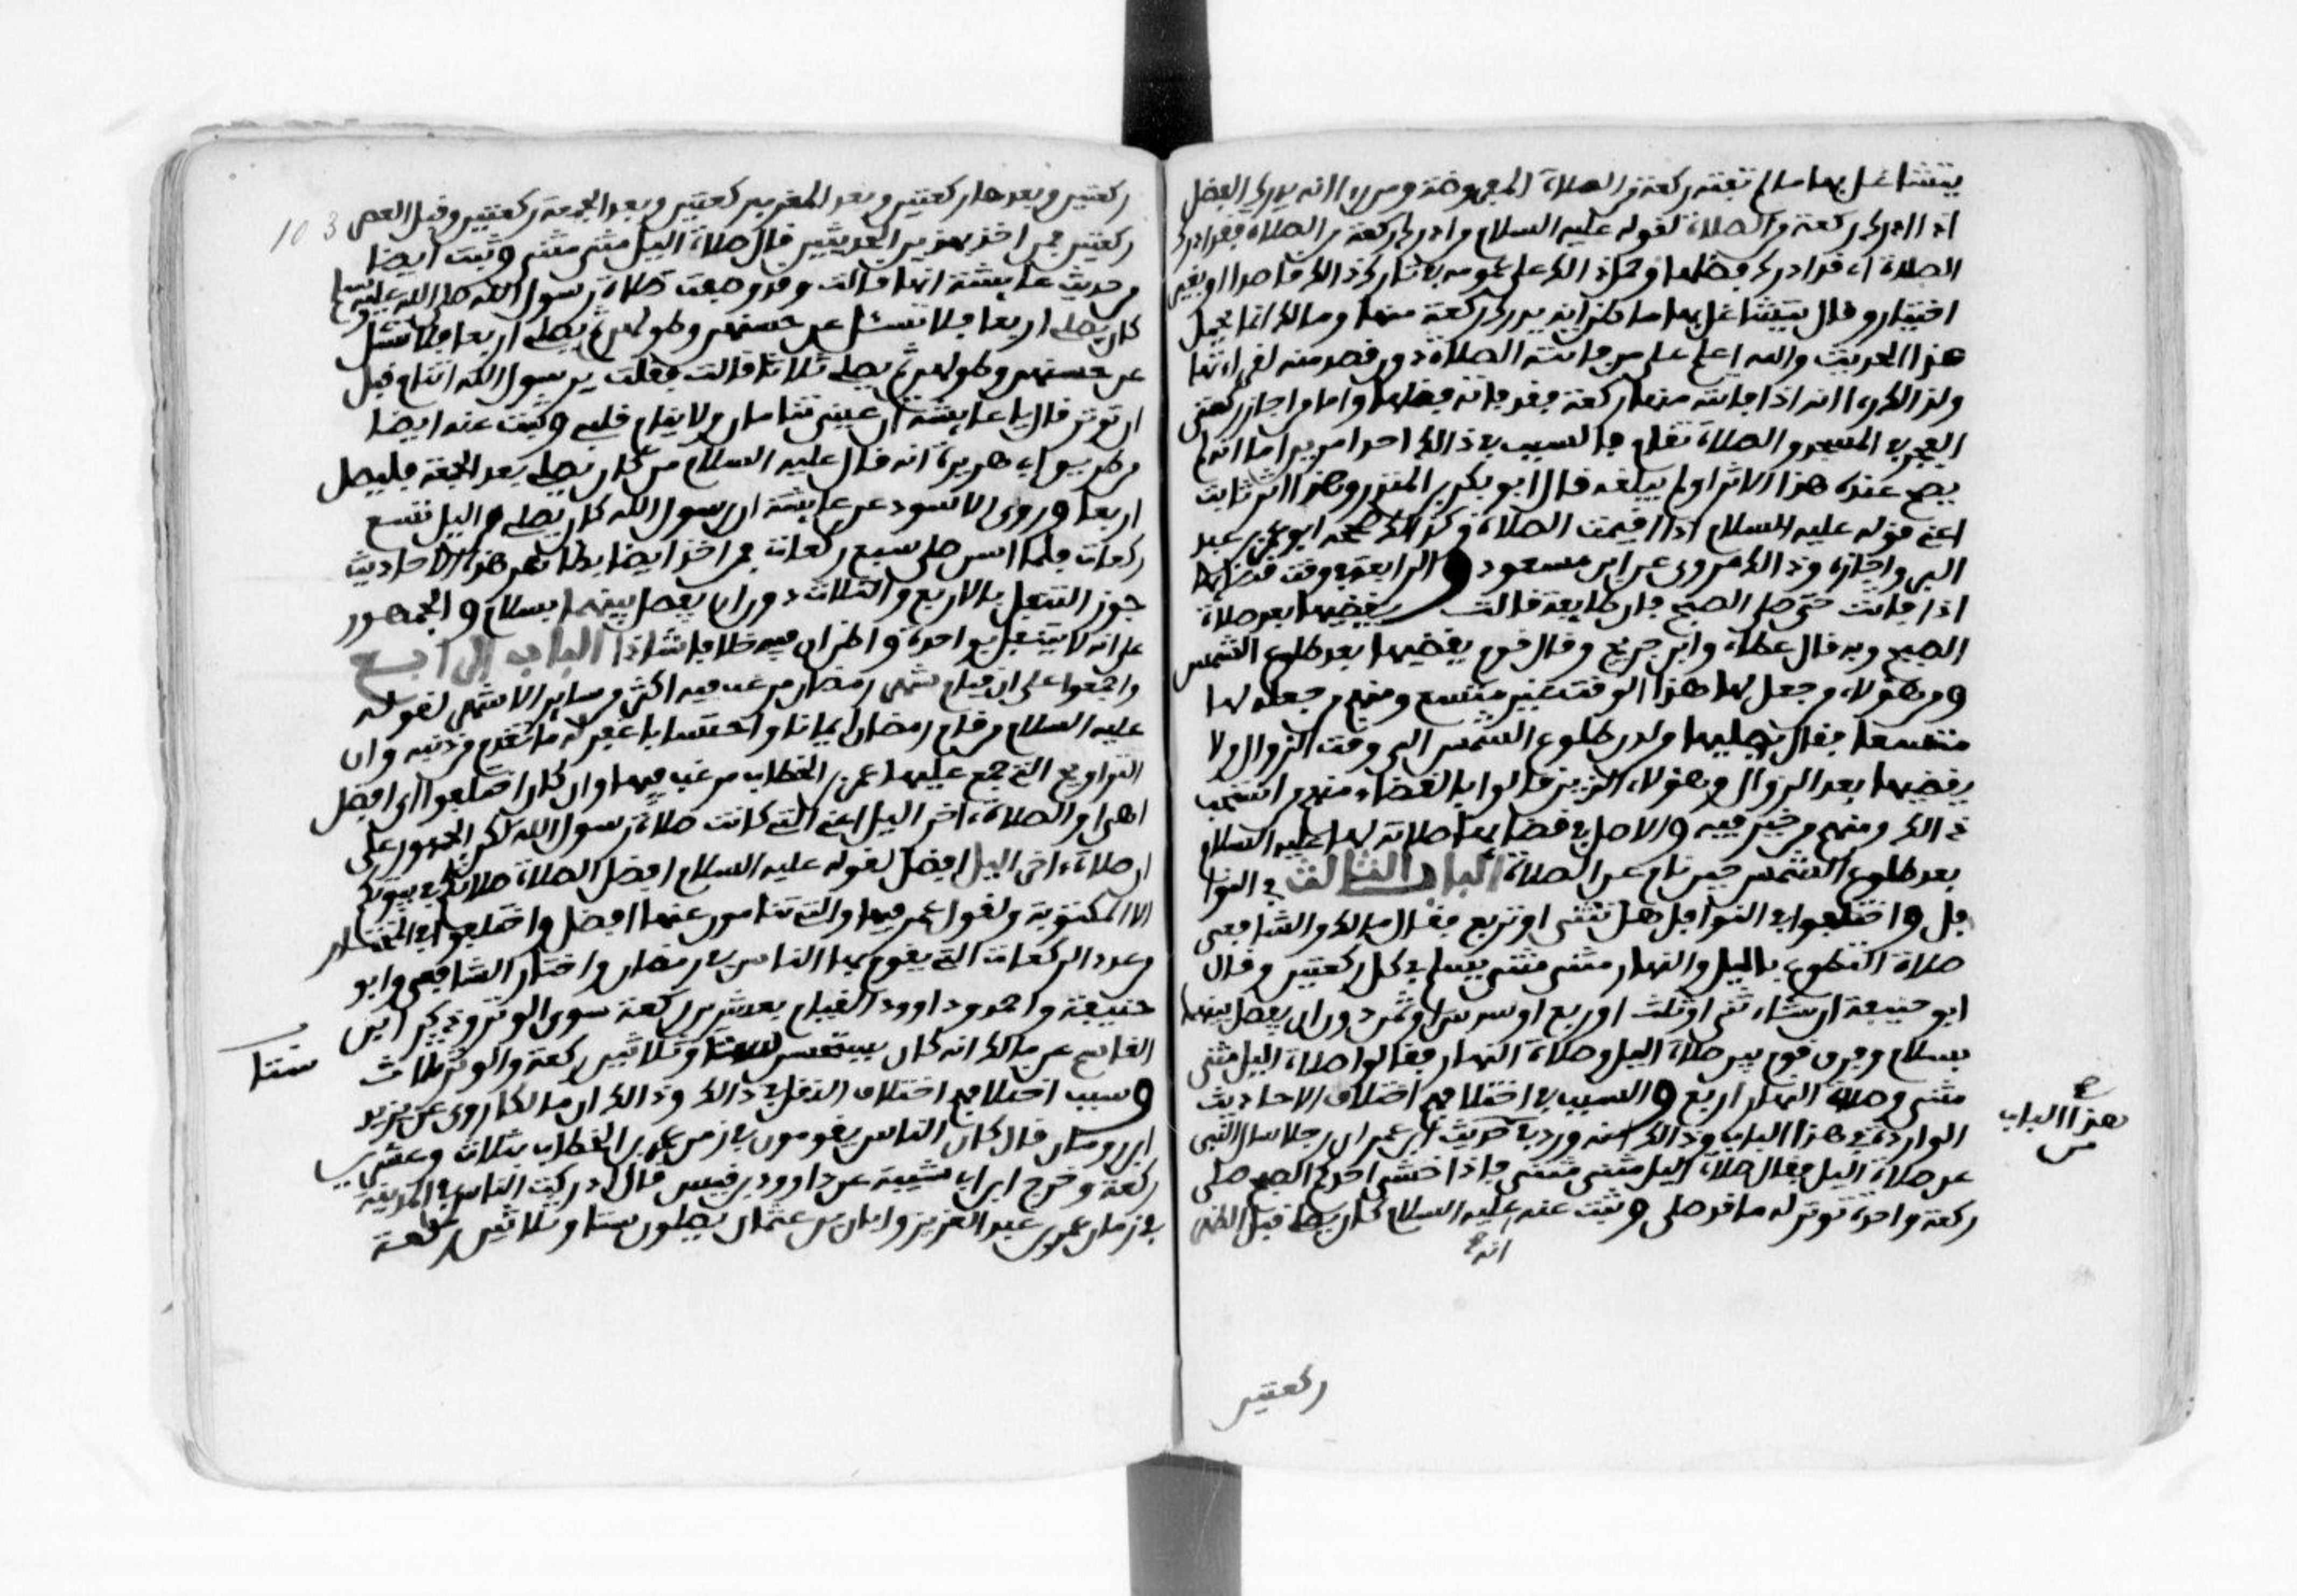 يتشاغل بها ما لم تفته ركعة من الصلاة المفروضة ومن راا انه يدرك الفضل
اذا ادرك ركعة من الصلاة لقوله عليه السلام من ادرك ركعة من الصلاة فقد ادرك
الصلاة اي قد ادرك فضلها وحمل ذالك على عمومه في تارك ذالك قاصدا او بغير
اختيار وقال يتشاغل بها ما ظن انه يدرك ركعة منها ومالك انما يحمل
هذا الحديث والله اعلم على من فاتته الصلاة دون قصد منه لفواتها
ولذالك راا انه اذا فاتته منها ركعة فقد فاته فضلها واما من اجاز ركعتي
الفجر في المسجد والصلاة تقام فالسبب في ذالك احد امرين اما انه لم
يصح عنده هذا الاثر او لم يبلغه قال ابو بكر بن المنذر وهذا اثر ثابت
اعني قوله عليه السلام اذا اقيمت الصلاة وكذالك صححه ابو عمر بن عبد
البر واجازه وذالك مروي عن ابن مسعود والرابعة في وقت قضائها
اذا فاتت حتى صلى الصبح فان طايفة قالت يقضيها بعد صلاة
الصبح وبه قال عطاء وابن جريج وقال قوم يقضيها بعد طلوع الشمس
ومن هؤلاء من جعل لها هذا الوقت غير متسع ومنهم من جعله لها
متسعا فقال يصليها من لدن طلوع الشمس الى وقت الزوال ولا
يقضيها بعد الزوال وهؤلاء الذين قالوا بالقضاء منهم من استحب
ذالك ومنهم من خير فيه والاصل في قضائها صلاته لها عليه السلام
بعد طلوع الشمس حين نام عن الصلاة الباب الثالث في النوا
فل واختلفوا في النوافل هل تثنى او تربع فقال مالك والشافعي
صلاة التطوع بالليل والنهار مثنى مثنى يسلم في كل ركعتين وقال
ابو حنيفة ان شاء ثنى او ثلث او ربع او سدس او ثمن دون ان يفصل بينها
بسلام وفرق قوم بين صلاة اليل وصلاة النهار فقالوا صلاة اليل مثنى
مثنى وصلاة النهار اربع والسبب في اختلافهم اختلاف الاحاديث
الواردة في هذا الباب وذالك انه ورد في حديث ابن عمر ان رجلا سال النبي
هذا الباب
عن صلاة اليل فقال صلاة اليل مثنى مثنى فاذا خشي احدكم الصبح صلى
ركعة واحدة توتر له ما قد صلى وثبت عنه عليه السلام كان يصلي قبل الظهر
انه
ركعتين
103
ركعتين وبعدها ركعتين وبعد المغرب ركعتين وبعد الجمعة ركعتين وقبل العصر
ركعتين فمن اخذ بهذين الحديثين قال صلاة اليل مثنى مثنى وثبت ايضا
من حديث عايشة انها قالت وقد وصفت صلاة رسول الله صلى الله عليه وسلم
كان يصلي اربعا فلا تسئل عن حسنهن وطولهن ثم يصلي اربعا فلا تسئل
عن حسنهن وطولهن ثم يصلي ثلاثا قالت فقلت يرسول الله اتنام قبل
ان توتر قال يا عايشة ان عيني تنامان ولا ينام قلبي وثبت عنه ايضا
من طريق ابي هريرة انه قال عليه السلام من كان يصلي بعد الجمعة فليصل
اربعا وروى الاسود عن عايشة ان رسول الله كان يصلي من اليل تسع
ركعات فلما اسن صلى سبع ركعات فمن اخذ ايضا بظاهر هذه الاحاديث
جوز التنفل بالاربع والثلاث دون ان يفصل بينهما بسلام والجمهور
على انه لا يتنفل بواحدة واظن ان فيه خلافا شاذا الباب الرابع
واجمعوا على ان قيام شهر رمضان مرغب فيه اكثر من ساير الاشهر لقوله
عليه السلام من قام رمضان ايمانا واحتسابا غفر له ما تقدم من ذنبه وان
التراويح التي جمع عليها عمر بن الخطاب مرغب فيها وان كان اختلفوا اي افضل
اهي او الصلاة ءاخر اليل اعني التي كانت صلاة رسول الله لكن الجمهور على
ان صلاة ءاخر اليل افضل لقوله عليه السلام افضل الصلاة صلاتكم في بيوتكم
الا المكتوبة ولقول عمر فيها والتي تنامون عنها افضل واختلفوا في المختار
من عدد الركعات التي يقوم بها الناس في رمضان واختار الشافعي وابو
حنيفة واحمد وداوود القيام بعشرين ركعة سوى الوتر وذكر ابن
القاسم عن مالك انه كان يستحسن ستا وثلاثين ركعة والوتر ثلاث
ستا
وسبب اختلافهم اختلاف النقل في ذالك وذالك ان مالكا روى عن يزيد
ابن رومان قال كان الناس يقومون في زمن عمر بن الخطاب بثلاث وعشرين
ركعة وخرج ابن ابي شيبة عن داوود بن قيس قال ادركت الناس في المدينة
في زمان عمر بن عبد العزيز وابان بن عثمان يصلون ستا وثلاثين ركعة